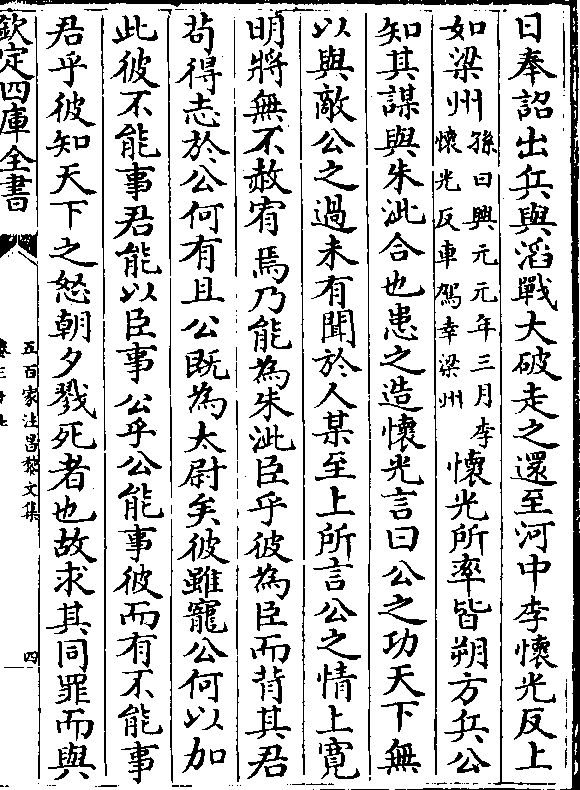 日奉詔出兵與滔戰大破走之還至河中李懷光反上
如梁州孫曰興元元年三月李懷光反車駕幸梁州懷光所率皆朔方兵公
知其謀與朱泚合也患之造懷光言曰公之功天下無
以與敵公之過未有聞於人某至上所言公之情上寬
明將無不赦宥焉乃能為朱泚臣乎彼為臣而背其君
茍得志於公何有且公既為太尉矣彼雖寵公何以加
此彼不能事君能以臣事公乎公能事彼而有不能事
君乎彼知天下之怒朝夕戮死者也故求其同罪而與
欽定四庫全書
五百家注昌黎文集
四